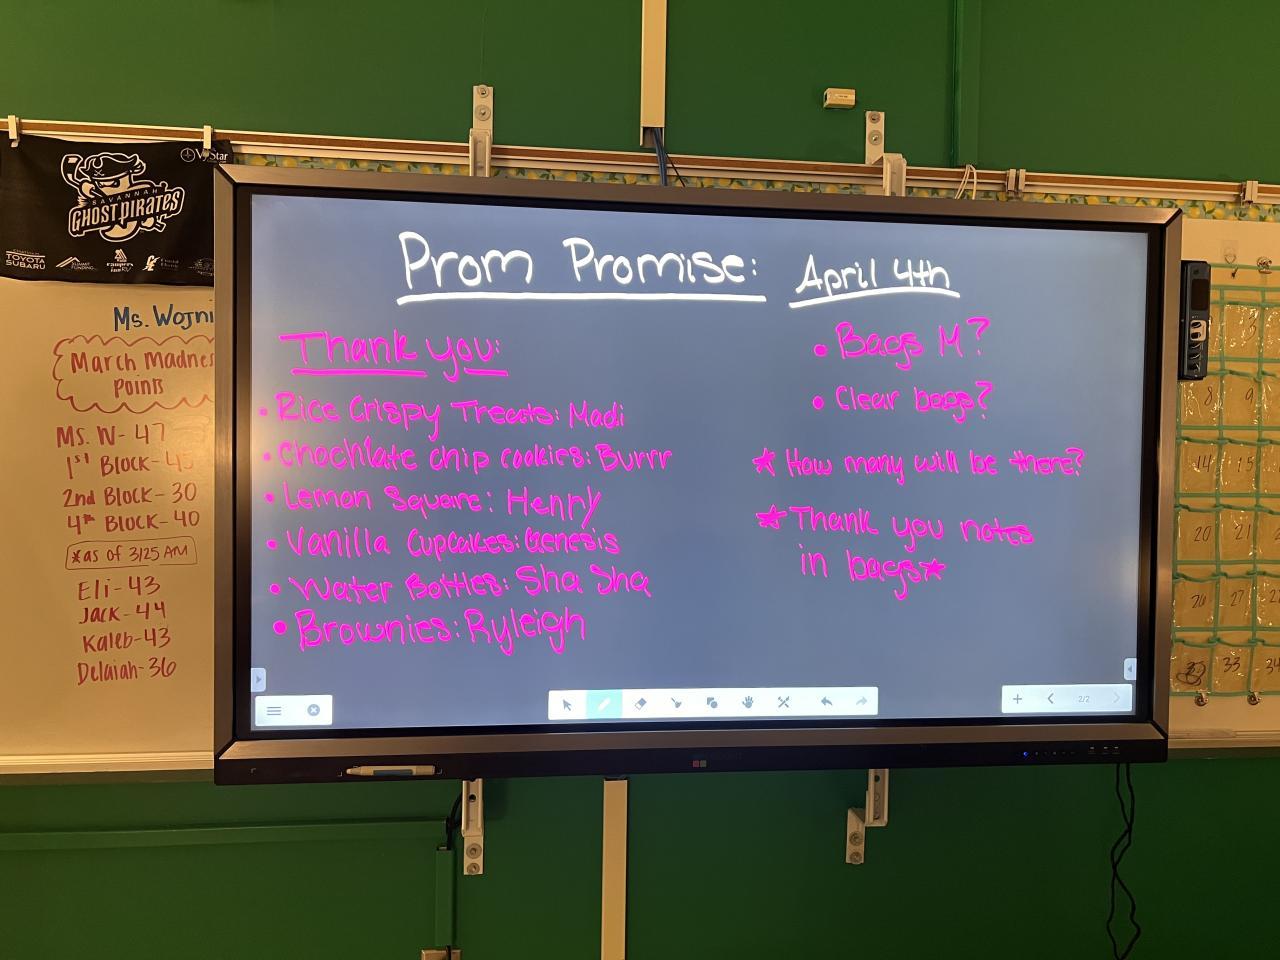 SAVANNAH
GHOST PIRATES
TOYOTA
SUBARU
Ms. Wojni
March Madnes
Points
Ms. W- 47
1st Block- 45
2nd Block- 30
4th Block- 40
*as of 3/25 AM
Eli- 43
Jack- 44
Kaleb- 43
Delaiah- 36
Prom Promise: April 4th
Thank you:
• Rice Crispy Treats: Madi
• Chochlate chip cookies: Burrr
• Lemon Square: Henry
• Vanilla Cupcakes: Genesis
• Water Bottles: Sha Sha
• Brownies: Ryleigh
• Bags M?
• Clear bags?
* How many will be there?
* Thank you nots
in bags*
2/2
8 9
14 15
20 21
26 27
33 34